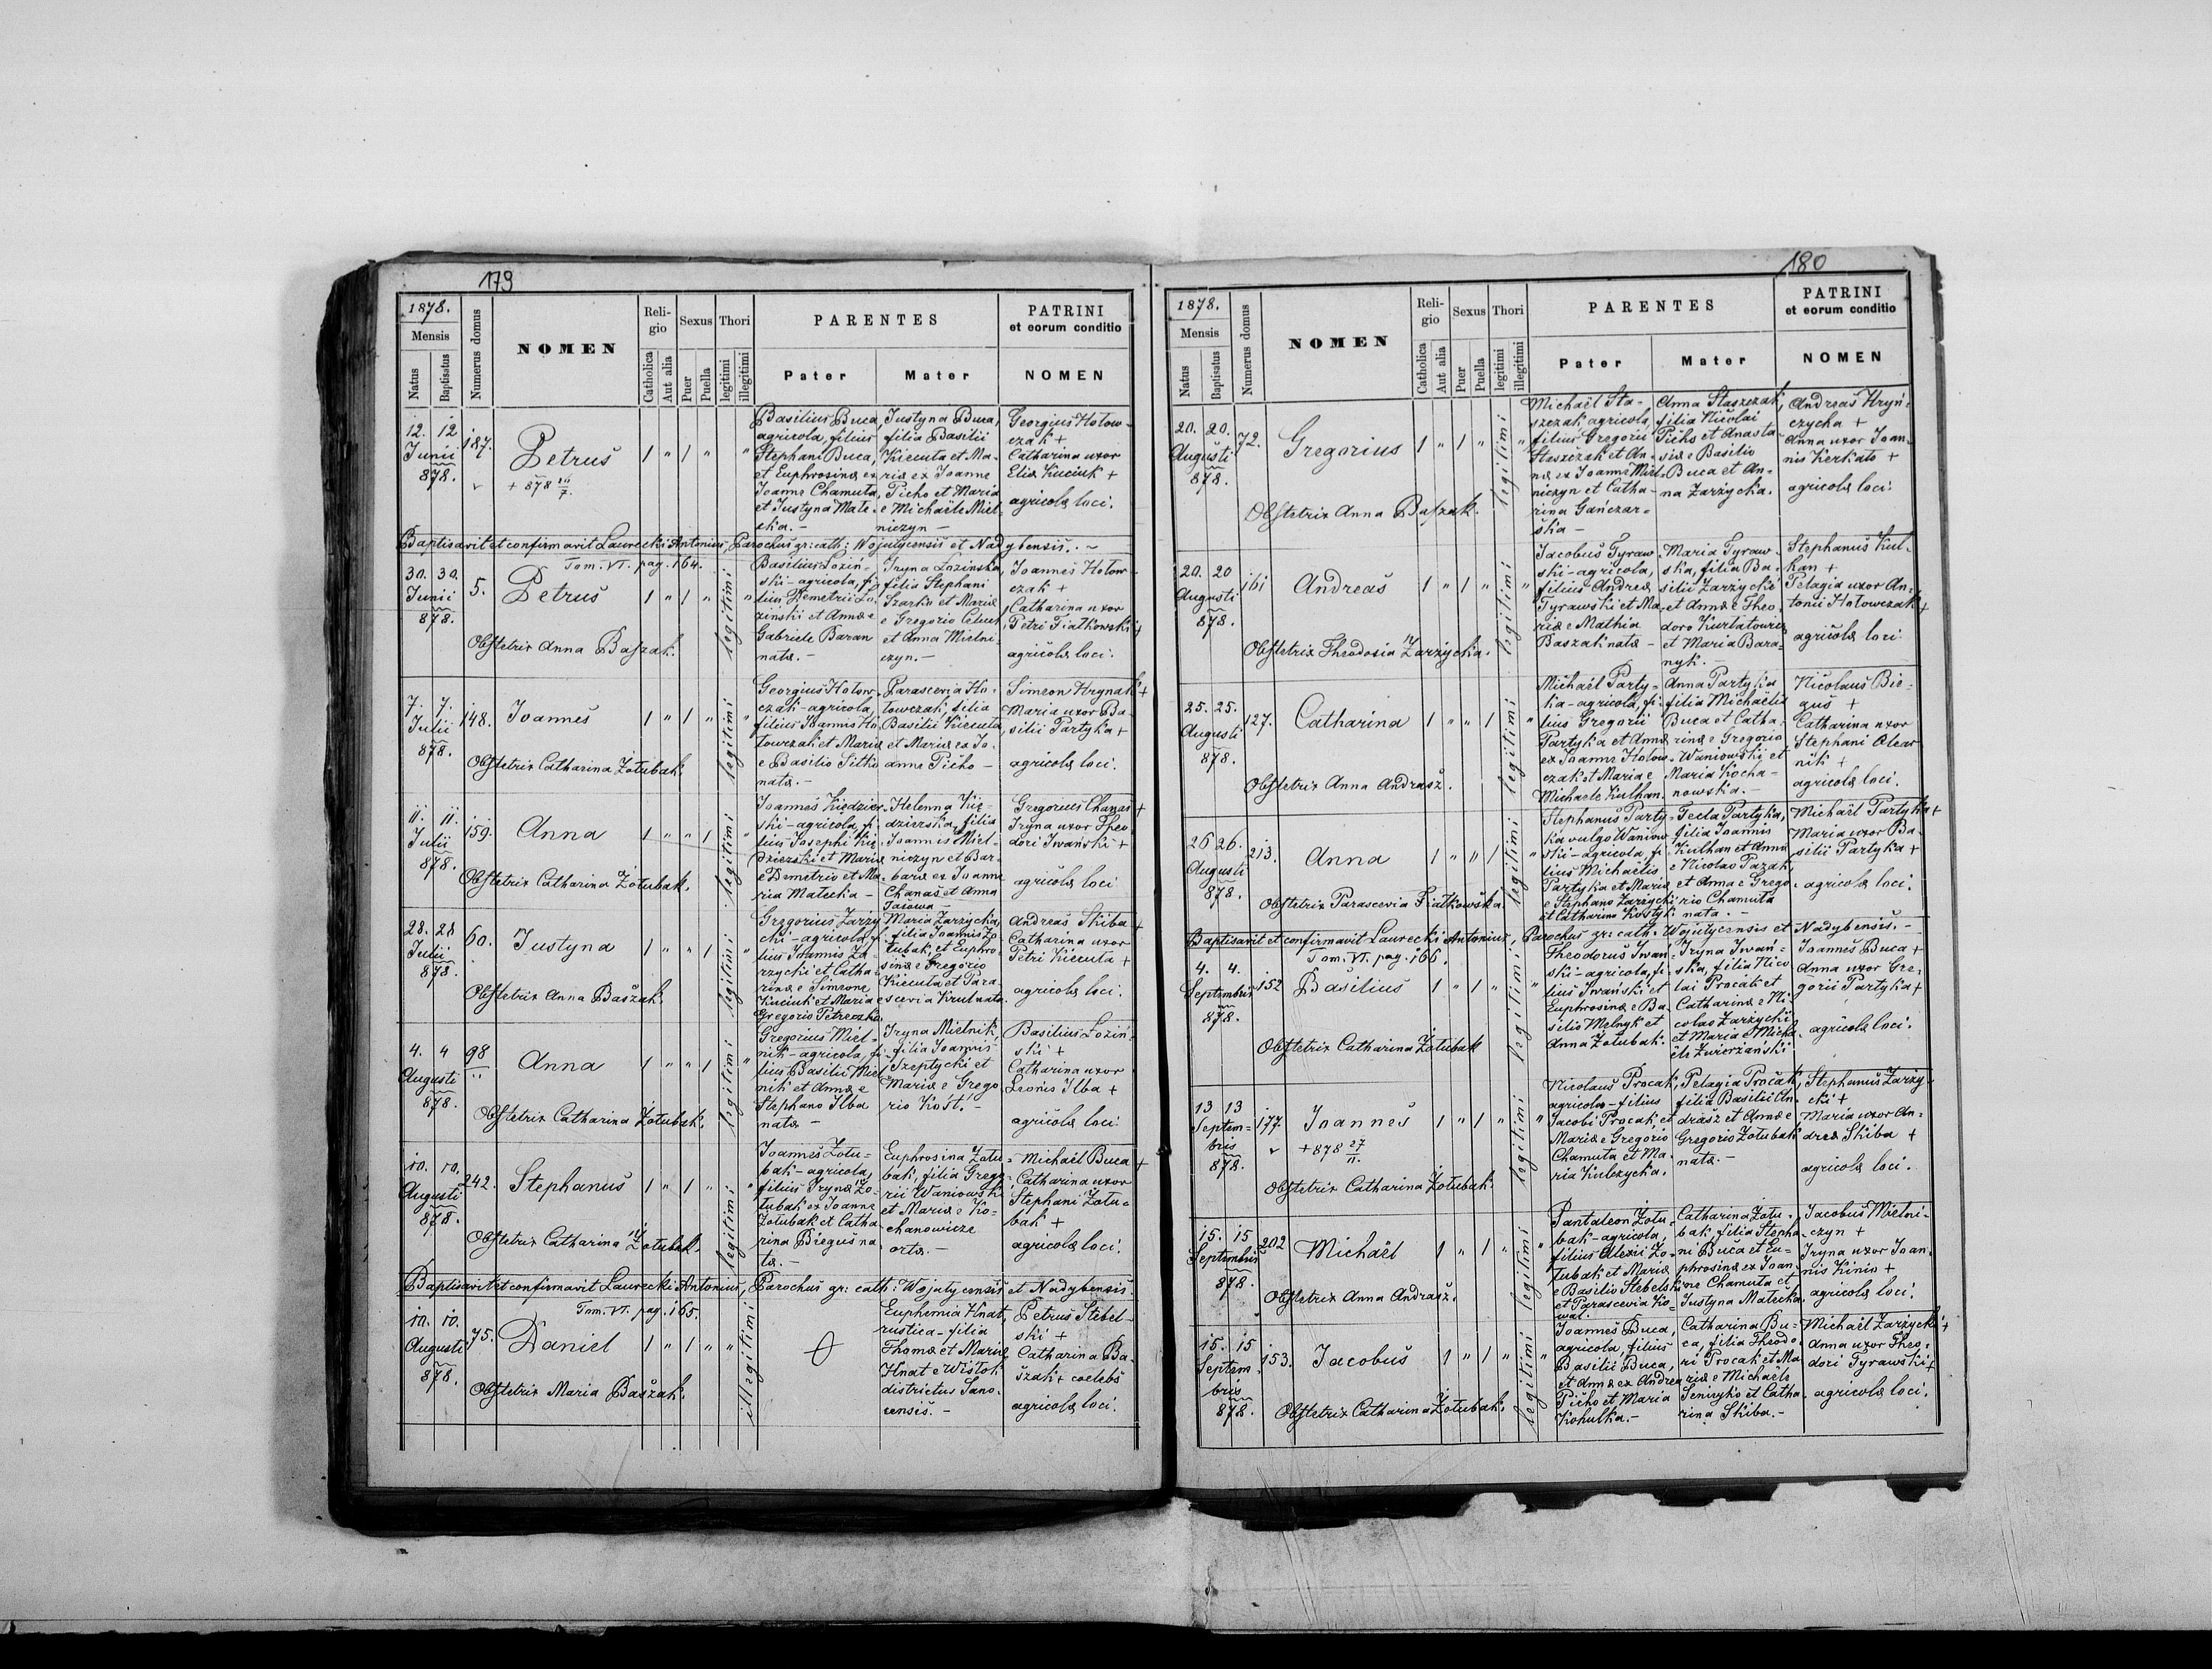 179
1878.
Mensis
Natus
Baptisatus
Numerus domus
NOMEN
Reli-
gio
Catholica
Aut alia
Sexus
Puer
Puella
Thori
legitimi
illegitimi
PARENTES
Pater
Mater
PATRINI
et eorum conditio
NOMEN
12. 12
Junii
878.
187.
Petrus
+ 878
1 " 1 " "
Basilius Buca,
agricola, filius
Stephani Buca,
et Euphrosinæ ex
Joanne Chamuta,
et Justyna Mate-
cka. -
Justyna Buca,
filia Basilii
Kiecuta et Ma-
riæ ex Joanne
Picho et Maria
e Michaële Miel-
niczyn -
Georgius Hotow-
czak +
Catharina uxor
Eliæ Kuciuk +
agricolæ loci.
Baptisavit et confirmavit Laurecki Antonius, Parochus gr: cath: Wojutycensis et Nadybensis. -
Tom. VI. pag. 164.
30. 30.
Junii
878.
5.
Petrus
1 " 1 " "
legitimi
Obstetrix Anna Baszak.
Basilius Łozin-
ski - agricola, fi-
lius Demetrii Ło-
zinski et Annæ e
Gabriele Baran
natæ. -
Iryna Łozinska,
filia Stephani
Szarko et Mariæ
e Gregorio Celuch
et Anna Mielni-
czyn. -
Joannes Hotow-
czak +
Catharina uxor
Petri Fiałkowski +
agricolæ loci.
7. 7.
Julii
878.
148.
Joannes
1 " 1 " "
legitimi
Obstetrix Catharina Żołubak.
Georgius Hotow-
czak - agricola,
filius Joannis Ho-
towczak et Mariæ
e Basilio Sitko
natæ. -
Parascevia Ho-
towczak, filia
Basilii Kiecuta
et Mariæ ex Jo-
anne Picho -
Simeon Hrynak +
Maria uxor Ba-
silii Partyka +
agricolæ loci.
11. 11.
Julii
878.
159.
Anna
1 " " 1 "
legitimi
Obstetrix Catharina Żołubak.
Joannes Kiędzier-
ski - agricola, fi-
lius Josephi Kię-
dzierski et Mariæ
e Demetrio et Ma-
ria Matecka -
Helenna Kię-
dzierska, filia
Joannis Miel-
niczyn et Bar-
baræ ex Joanne
Chanas et Anna
Tasowa -
Gregorius Chanas +
Iryna uxor Theo-
dori Iwański +
agricolæ loci
28. 28
Julii
878.
60.
Justyna
1 " " 1 "
legitimi
Obstetrix Anna Baszak.
Gregorius Zarzy-
cki - agricola, fi-
lius Joannis Za-
rzycki et Catha-
rinæ e Simeone
Kuciuk et Maria e
Gregorio Petreczka.
Maria Zarzycka,
filia Joannis Żo-
łubak, et Euphro-
sinæ e Gregorio
Kiecuta et Para-
scevia Krul nata.
Andreas Skiba +
Catharina uxor
Petri Kiecuta +
agricolæ loci.
4. 4
Augusti
878.
98
Anna
1 " " 1 "
legitimi
Obstetrix Catharina Żołubak.
Gregorius Miel-
nik - agricola, fi-
lius Basilii Miel-
nik et Annæ e
Stephano Ilba
natæ -
Iryna Mielnik,
filia Joannis
Szeptycki et
Mariæ e Grego-
rio Kost. -
Basilius Łozin-
ski +
Catharina uxor
Leonis Ilba +
agricolæ loci.
10. 10.
Augusti
878.
242.
Stephanus
1 " 1 " "
legitimi
Obstetrix Catharina Żołubak.
Joannes Żołu-
bak - agricola,
filius Irynæ Żo-
łubak ex Joanne
Żołubak et Catha-
rina Biegus na-
tæ. -
Euphrosina Żołu-
bak, filia Grego-
rii Waniowski
et Mariæ e Ko-
chanowicze
orta. -
Michaël Buca +
Catharina uxor
Stephani Żołu-
bak +
agricolæ loci.
Baptisavit et confirmavit Laurecki Antonius, Parochus gr: cath: Wojutycensis et Nadybensis.
Tom. VI. pag. 165.
10. 10.
Augusti
878.
75.
Daniel
1 " 1 " "
illegitimi
Obstetrix Maria Baszak.
Euphemia Hnat,
rustica - filia
Thomæ et Mariæ
Hnat e Wisłok
districtus Sano-
censis. -
Petrus Stebel-
ski +
Catharina Ba-
szak + coelebs
agricolæ loci.
180
1878.
Mensis
Natus
Baptisatus
Numerus domus
NOMEN
Reli-
gio
Catholica
Aut alia
Sexus
Puer
Puella
Thori
legitimi
illegitimi
PARENTES
Pater
Mater
PATRINI
et eorum conditio
NOMEN
20. 20.
Augusti
878.
72.
Gregorius
1 " 1 " "
legitimi
Obstetrix Anna Baszak.
Michaël Sta-
szczak, agricola,
filius Gregorii
Staszczak et An-
næ ex Joanne Miel-
niczyn et Catha-
rina Gańczar-
ska -
Anna Staszczak,
filia Nicolai
Picho et Anasta-
siæ e Basilio
Buca et An-
na Zarzycka.
Andreas Hryń-
czycha +
Anna uxor Joan-
nis Kerkato +
agricolæ loci.
20. 20
Augusti
878.
161
Andreas
1 " 1 " "
legitimi
Obstetrix Theodosia Zarzycka.
Jacobus Tyraw-
ski - agricola,
filius Andreæ
Tyrawski et Ma-
riæ e Mathia
Baszak natæ -
Maria Tyraw-
ska, filia Ba-
silii Zarzycki
et Annæ e Theo-
doro Kurtatowicz
et Maria Bara-
nyk. -
Stephanus Kul-
kan +
Pelagia uxor An-
tonii Hotowczak +
agricolæ loci.
25. 25.
Augusti
878.
127.
Catharina
1 " " 1 "
legitimi
Obstetrix Anna Andrasz.
Michaël Party-
ka - agricola, fi-
lius Gregorii
Partyka et Annæ
ex Joanne Hotow-
czak et Maria e
Michaele Kulhan.
Anna Partyka
filia Michaëlis
Buca et Catha-
rinæ e Gregorio
Waniowski et
Maria Kocha-
nowska. -
Nicolaus Bie-
gus +
Catharina uxor
Stephani Olear-
nik +
agricolæ loci.
26 26.
Augusti
878.
213.
Anna
1 " " 1 "
legitimi
Obstetrix Parascevia Fiatkowska.
Stephanus Party-
ka vulgo Waniow-
ski - agricola, fi-
lius Michaëlis
Partyka et Mariæ
e Stephano Zarzycki
et Catharina Kostyk
Tecla Partyka,
filia Joannis
Kulhan et Annæ
e Nicolao Pazak
et Anna e Grego-
rio Chamuta
nata. -
Michaël Partyka +
Maria uxor Ba-
silii Partyka +
agricolæ loci.
Baptisavit et confirmavit Laurecki Antonius, Parochus gr: cath: Wojutycensis et Nadybensis. -
Tom. VI. pag. 166.
4. 4.
Septembris
878.
152
Basilius
1 " 1 " "
legitimi
Obstetrix Catharina Żołubak
Theodorus Iwań-
ski - agricola, fi-
lius Iwański et
Euphrosinæ e Ba-
silio Melnyk et
Anna Żołubak.
Iryna Iwań-
ska, filia Nico-
lai Procak et
Catharinæ e Ni-
colao Zarzycki
et Maria e Micha-
ële Zwierżański
Joannes Buca +
Anna uxor Gre-
gorii Partyka +
agricolæ loci.
13 13
Septem-
bris
878.
177.
Joannes
+ 878 27/11.
1 " 1 " "
legitimi
Obstetrix Catharina Żołubak.
Nicolaus Procak,
agricola - filius
Jacobi Procak, et
Mariæ e Gregorio
Chamuta et Ma-
ria Kulczycka.
Pelagia Procak,
filia Basilii An-
drasz et Annæ e
Gregorio Żołubak
nata. -
Stephanus Zarzy-
cki +
Maria uxor An-
dreæ Skiba +
agricolæ loci.
15. 15
Septembris
878.
202
Michaël
1 " 1 " "
legitimi
Obstetrix Anna Andrasz.
Pantaleon Żołu-
bak - agricola,
filius Alexii Żo-
łubak et Mariæ
e Basilio Stebelski
et Parascevia Ko-
wal.
Catharina Żołu-
bak, filia Stepha-
ni Buca et Eu-
phrosinæ ex Joan-
ne Chamuta et
Justyna Matecka.
Jacobus Mielni-
czyn +
Iryna uxor Joan-
nis Kinio +
agricolæ loci.
15. 15
Septem-
bris
878.
153.
Jacobus
1 " 1 " "
legitimi
Obstetrix Catharina Żołubak.
Joannes Buca,
agricola, filius
Basilii Buca,
et Annæ ex Andrea
Picho et Maria
Kohulka. -
Catharina Bu-
ca, filia Theodo-
ri Procak et Ma-
riæ e Michaële
Senizyko et Catha-
rina Skiba. -
Michaël Zarzycki +
Anna uxor Theo-
dori Tyrawski +
agricolæ loci.